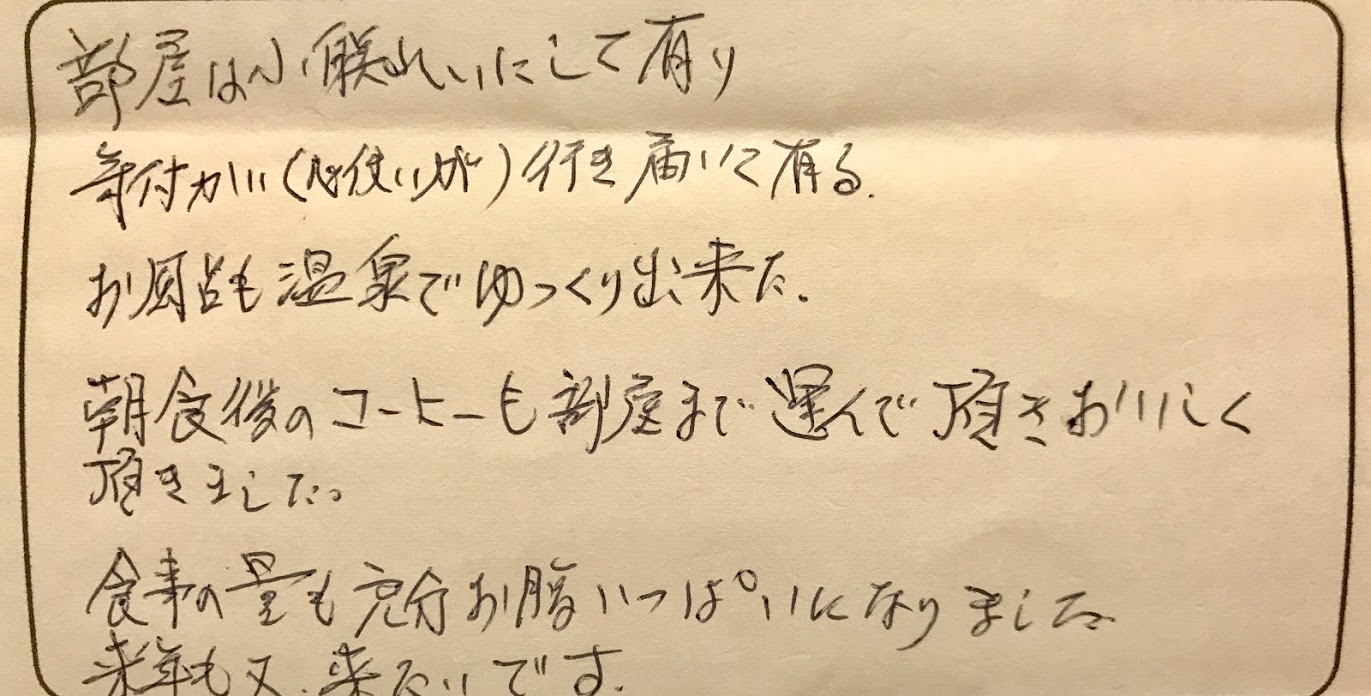 部屋は小綺れいにして有り
付かい(心使いが)行き届いて有る.
お風呂も温泉でゆっくり出来た.
朝食後のコーヒーも部屋まで運んで頂きおいしく
頂きました。
食事の量も充分お腹いっぱいになりました
来年も又、来たいです.